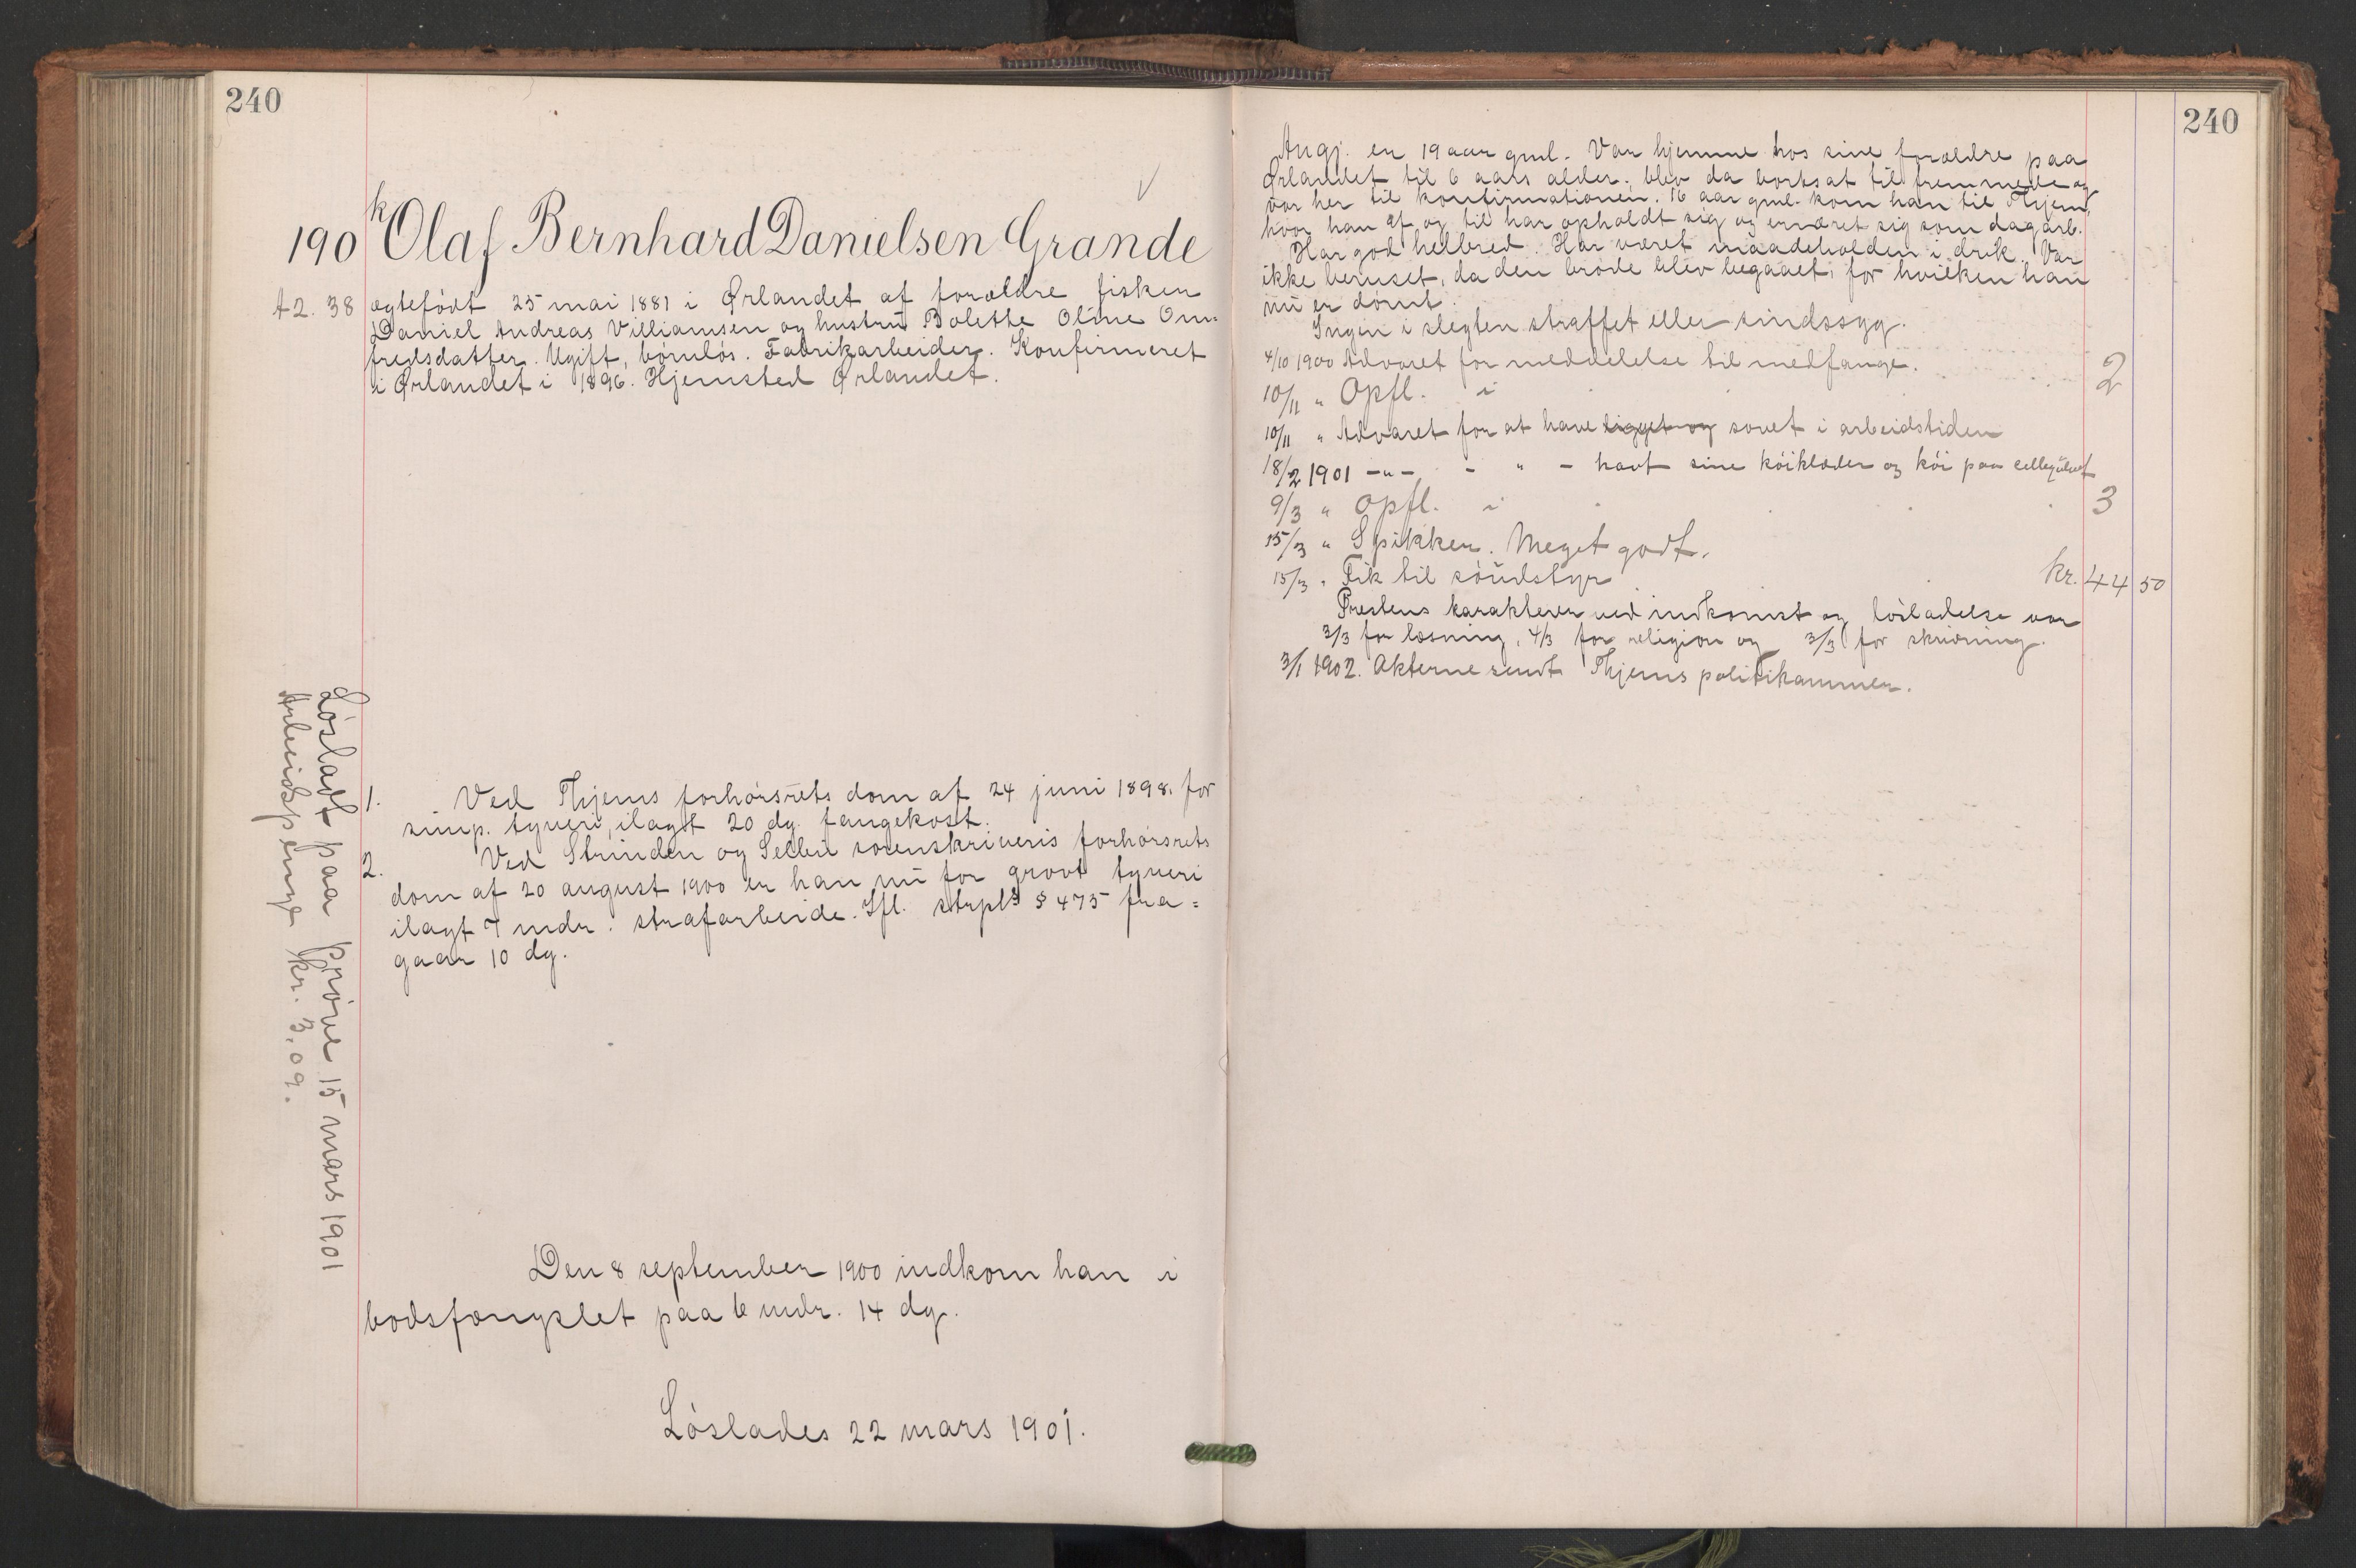 240
190 k Olaf Bernhard Danielsen Grande
A2. 38 ægtefødt 25 mai 1881 i Ørlandet af forældre fisker
Daniel Andreas Villiamsen og hustru Bolette Oline Om-
fredsdatter. Ugift, børnløs. Fabrikarbeider. Konfirmeret
i Ørlandet i 1896. Hjemsted Ørlandet.
1. Ved Thjems forhørsrets dom af 24 juni 1898 for
simp. tyveri, ilagt 20 dg. fangekost.
2. Ved Strinden og Selbu sorenskriveris forhørsrets
dom af 20 august 1900 er han nu for grovt tyveri
ilagt 7 mdr. strafarbeide. Ifl. strpl's § 475 fra=
gaar 10 dg.
Løsladt paa prøve 15 mars 1901
Arbeidspenge kr. 3,09.
Den 8 september 1900 indkom han i
bodsfængslet paa 6 mdr. 14 dg.
Løslades 22 mars 1901.
240
Angj. er 19 aar gml. Var hjemme hos sine forældre paa
Ørlandet til 6 aars alder, blev da bortsat til fremmede og
var her til konfirmationen. 16 aar gml. kom han til Thjem,
hvor han af og til har opholdt sig og ernæret sig som dagarb.
Har god helbred. Har været maadeholden i drik. Var
ikke beruset, da den brøde blev begaaet, for hvilken han
nu er dømt.
Ingen i slegten straffet eller sindssyg.
4/10 1900 Advaret for meddelelse til medfange.
10/11 " Opfl. i 2
10/11 " Advaret for at have ligget og sovet i arbeidstiden
18/2 1901 -"- - " - havt sine køiklæder og køi paa cellegulvet
9/3 " Opfl. i 3
15/3 " Spikker. Meget godt.
15/3 " Fik til sòudstyr kr. 44 50
Prestens karakterer ved indkomst og løsladelse var
3/3 for læsning, 4/3 for religion og 3/3 for skrivning.
3/1 1902. Akterne sendt Thjems politikammer.